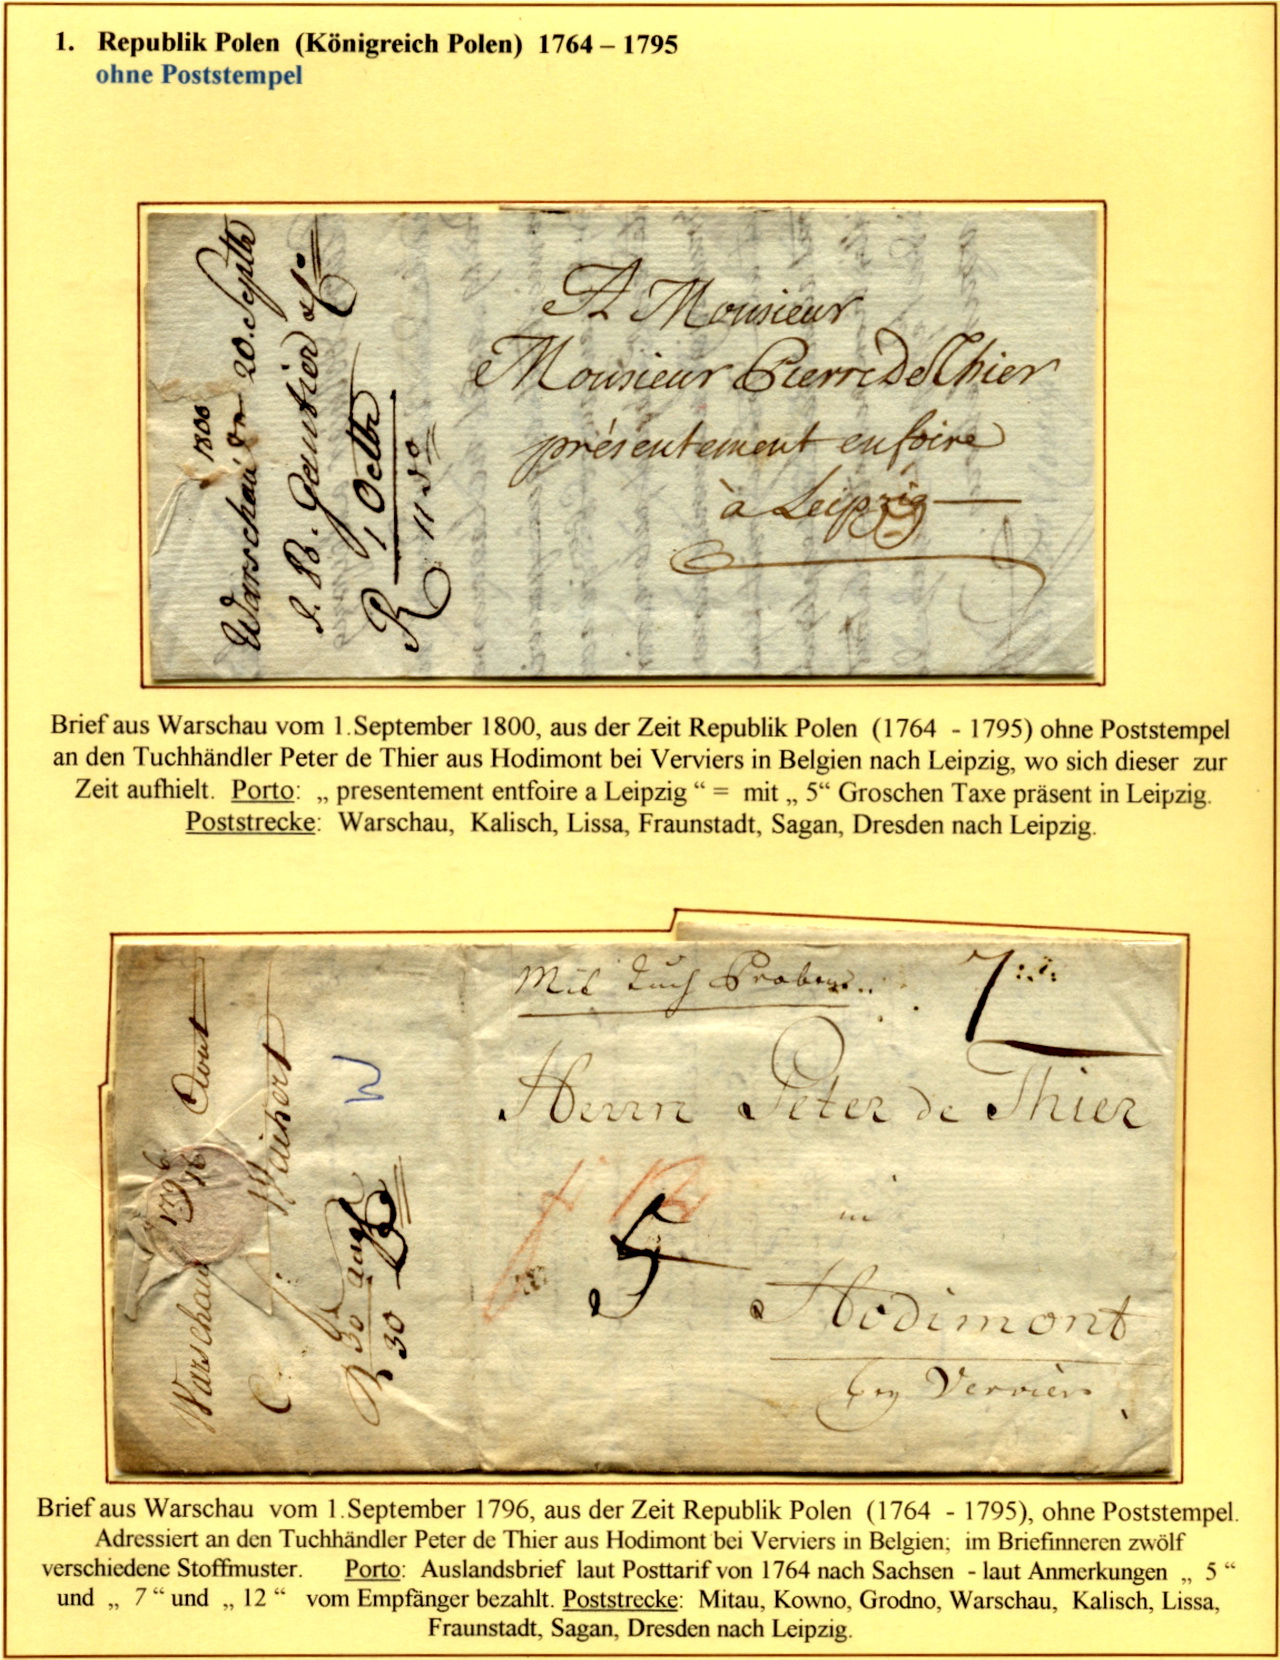 1. Republik Polen (Königreich Polen) 1764 – 1795
ohne Poststempel
1800
Warschau den 20. Septbr
J. Bb. Gautier &Co
1 Octbr
R 11 do
A Monsieur
Monsieur Pierre De Thier
présentement en foire
à Leipzig
Brief aus Warschau vom 1.September 1800, aus der Zeit Republik Polen (1764 - 1795) ohne Poststempel
an den Tuchhändler Peter de Thier aus Hodimont bei Verviers in Belgien nach Leipzig, wo sich dieser zur
Zeit aufhielt. Porto: „ presentement entfoire a Leipzig “ = mit „ 5“ Groschen Taxe präsent in Leipzig.
Poststrecke: Warschau, Kalisch, Lissa, Fraunstadt, Sagan, Dresden nach Leipzig.
Mit Tuch Proben
7
Herrn Peter de Thier
in
5
Hodimont
bey Verviers
1796
Warschau 16 Aout
W
R 30 augt
30
Brief aus Warschau vom 1.September 1796, aus der Zeit Republik Polen (1764 - 1795), ohne Poststempel.
Adressiert an den Tuchhändler Peter de Thier aus Hodimont bei Verviers in Belgien; im Briefinneren zwölf
verschiedene Stoffmuster. Porto: Auslandsbrief laut Posttarif von 1764 nach Sachsen - laut Anmerkungen „ 5 “
und „ 7 “ und „ 12 “ vom Empfänger bezahlt. Poststrecke: Mitau, Kowno, Grodno, Warschau, Kalisch, Lissa,
Fraunstadt, Sagan, Dresden nach Leipzig.